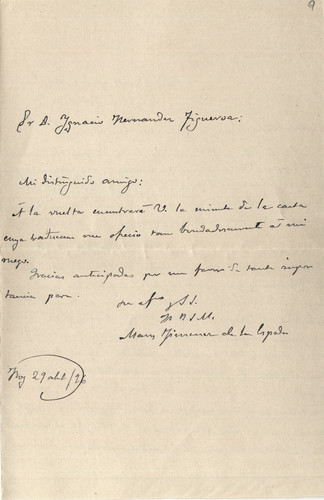 9
Sr D. Ignacio Hernandez Figueroa:
Mi distinguido amigo:
Á la vuelta encontrará V. la minuta de la carta
cuya traduccion me ofreció tan bondadosamente á mi
ruego.
Gracias anticipadas por un favor de tanta impor
tancia para
su af⁰ y S. S.
Q B S M.
Marcos Jimenez de la Espada
Hoy 29 abl/96